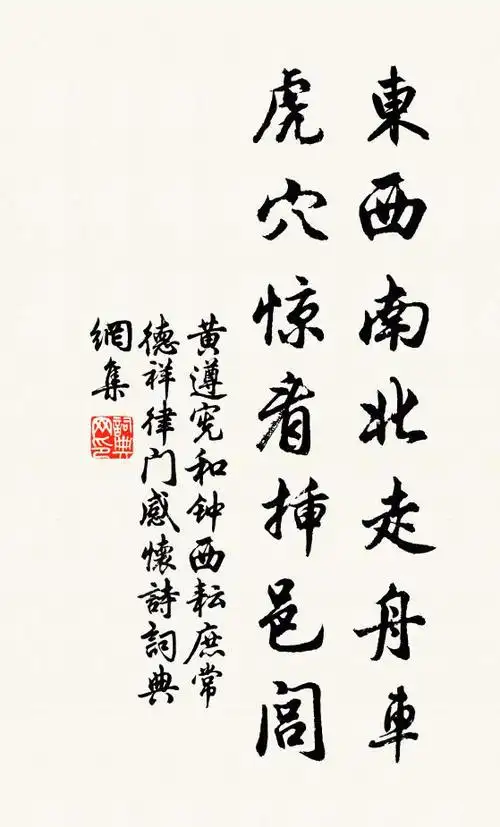 東西南北走舟車
虎穴惊看挿邑闾
黄遵宪和钟西耘庶常
德祥律门感懷詩詞典
網集
詞典
网印